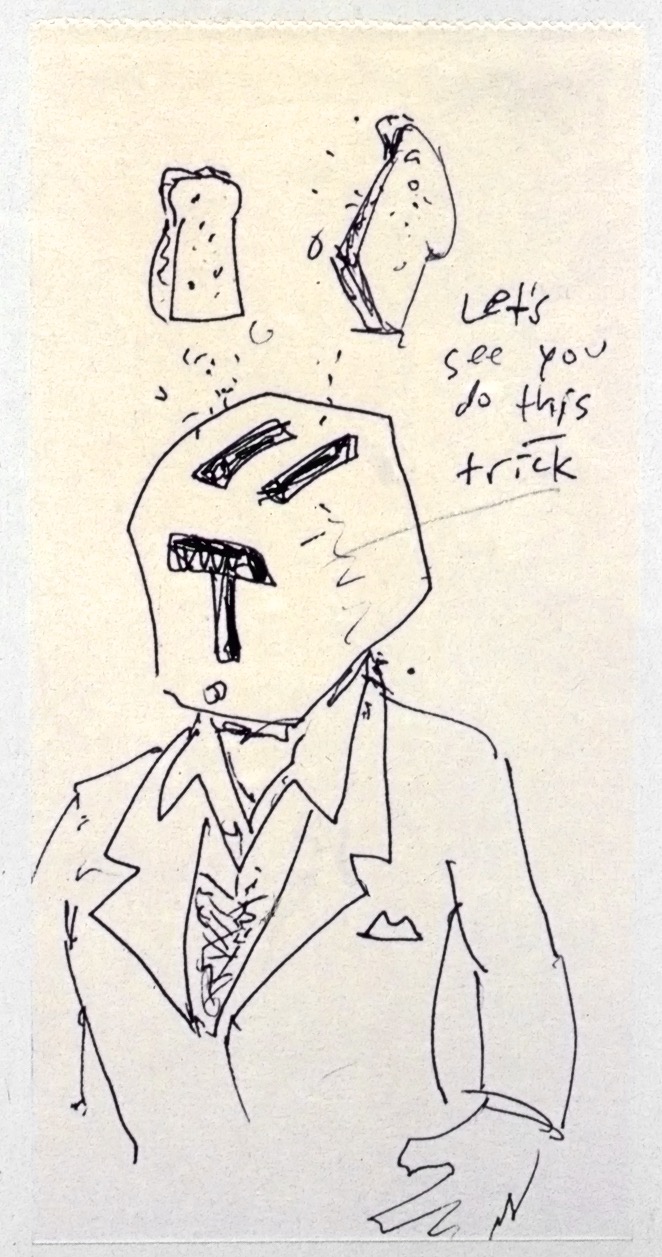 Let's
see you
do this
trick